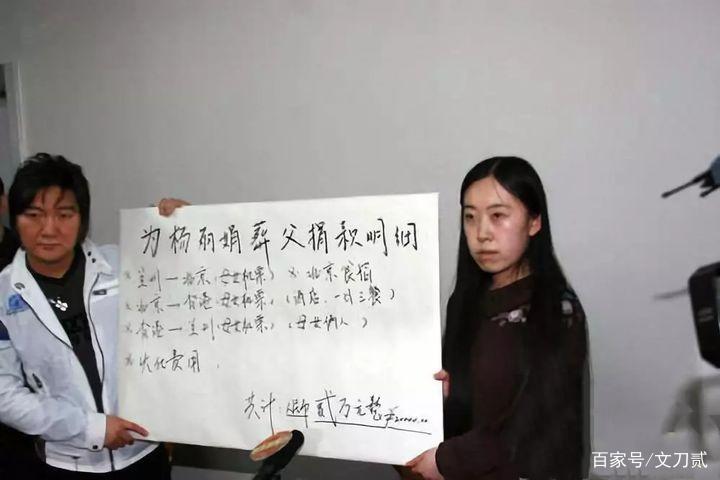 为杨丽娟葬父捐款明细
※ 兰州一北京(母女机票) ※ 北京食宿
※ 北京一香港(母女机票)(酒店.一日三餐)
※ 香港一兰州(母女机票)(母女俩人)
※ 火化费用.
共计: 贰万元整 ¥20000.00
百家号/文刀贰